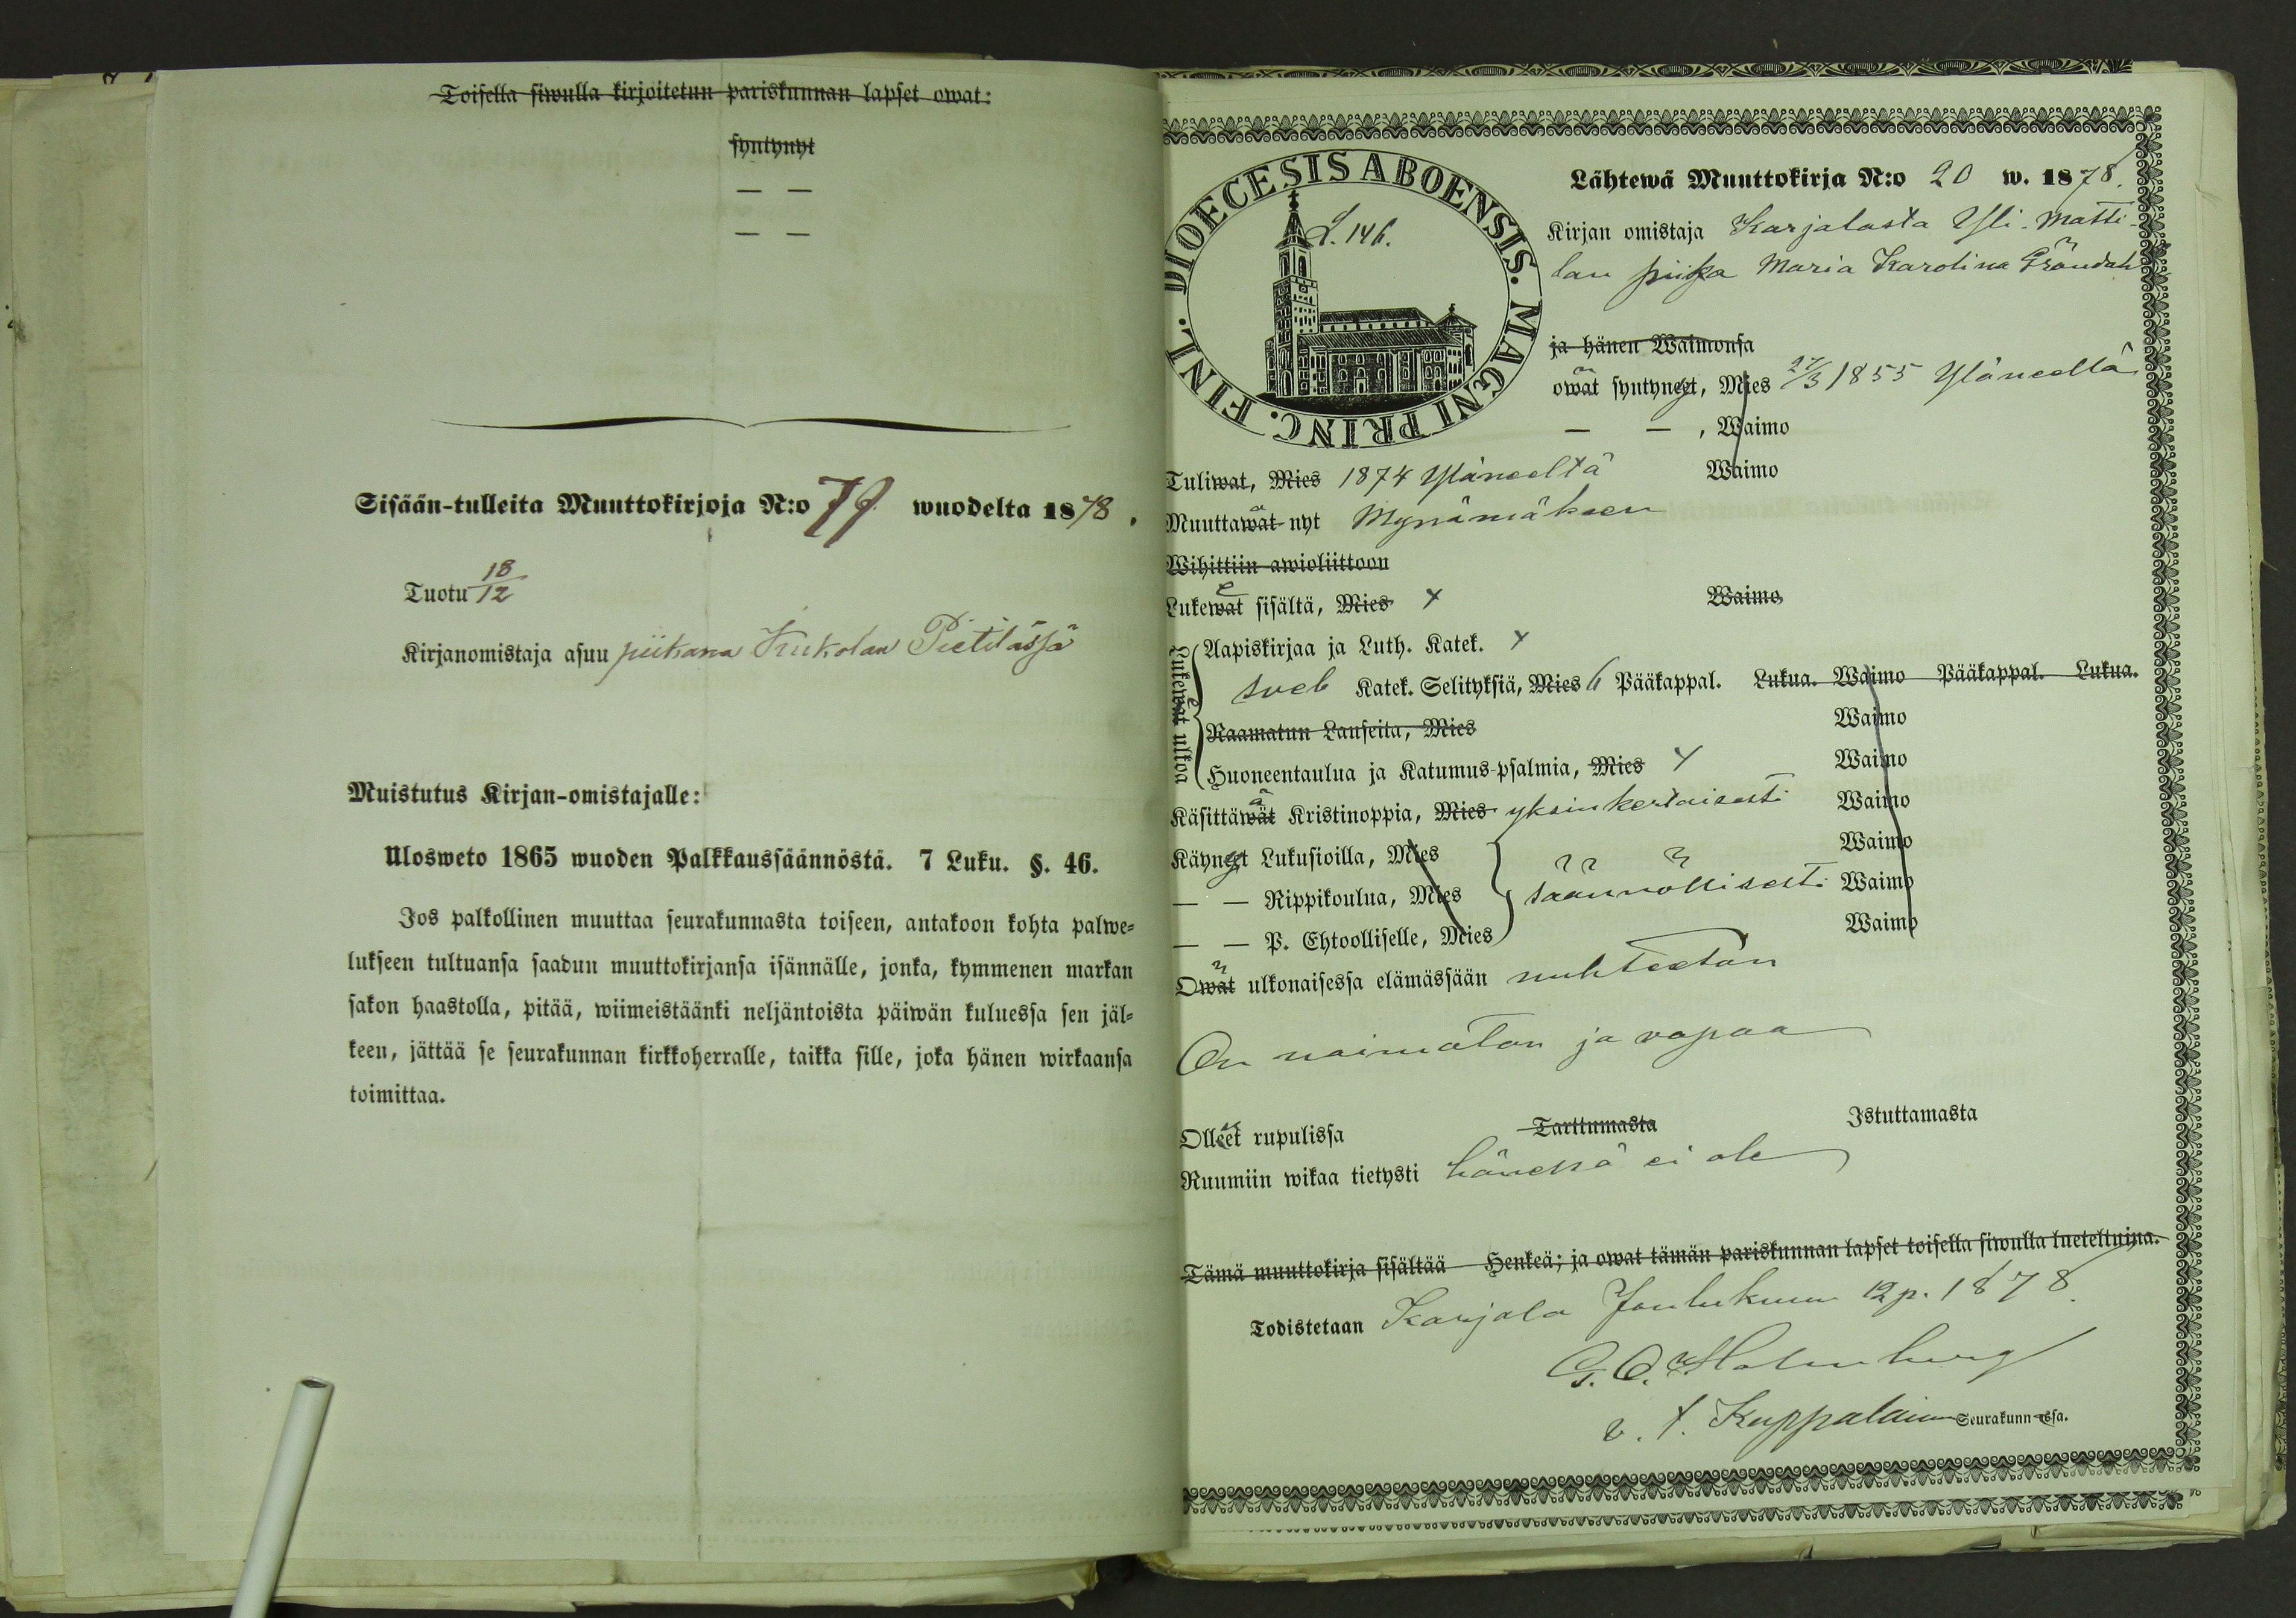 Toisella siwulla kirjoitetun pariskunnan lapset owat:
syntynyt
— —
— —
Sisään-tulleita Muuttokirjoja N:o 79 wuodelta 1878.
Tuotu 18/12
Kirjanomistaja asuu piikana Kukolan Pietilässä
Muistutus Kirjan-omistajalle:
Ulosweto 1865 wuoden Palkkaussäännöstä. 7 Luku. §. 46.
Jos palkollinen muuttaa seurakunnasta toiseen, antakoon kohta palwe=
lukseen tultuansa saadun muuttokirjansa isännälle, jonka, kymmenen markan
sakon haastolla, pitää, wiimeistäänki neljäntoista päiwän kuluessa sen jäl=
keen, jättää se seurakunnan kirkkoherralle, taikka sille, joka hänen wirkaansa
toimittaa.
DIOECESIS ABOENSIS. MAGNI PRINC. FINL.
L. 146.
Lähtewä Muuttokirja N:o 20 w. 1878.
Kirjan omistaja Karjalasta Yli-Matti-
lan piika Maria Karolina Gröndahl
ja hänen Waimonsa
owat syntyneet, Mies 27/3 1855 Yläneellä
— — , Waimo
Tuliwat, Mies 1874 Yläneeltä Waimo
Muuttawat nyt Mynämäkeen
Wihittiin awioliittoon
Lukewat sisältä, Mies + Waimo
Lukewat ulkoa
Aapiskirjaa ja Luth. Katek. +
Sveb Katek. Selityksiä, Mies 6 Pääkappal. Lukua. Waimo Pääkappal. Lukua.
Raamatun Lauseita, Mies Waimo
Huoneentaulua ja Katumus-psalmia, Mies + Waimo
Käsittäwät Kristinoppia, Mies yksinkertaisesti Waimo
Käyneet Lukusioilla, Mies Waimo
— — Rippikoulua, Mies säännöllisesti Waimo
— — P. Ehtoolliselle, Mies Waimo
Owat ulkonaisessa elämässään nuhteeton
On naimaton ja vapaa
Olleet rupulissa Tarttumasta Istuttamasta
Ruumiin wikaa tietysti hänessä ei ole
Tämä muuttokirja sisältää Henkeä; ja owat tämän pariskunnan lapset toisella siwulla lueteltuina.
Todistetaan Karjala Joulukuun 12 p. 1878.
G. O. Holmberg
v. t. Kappalainen Seurakunn—ssa.